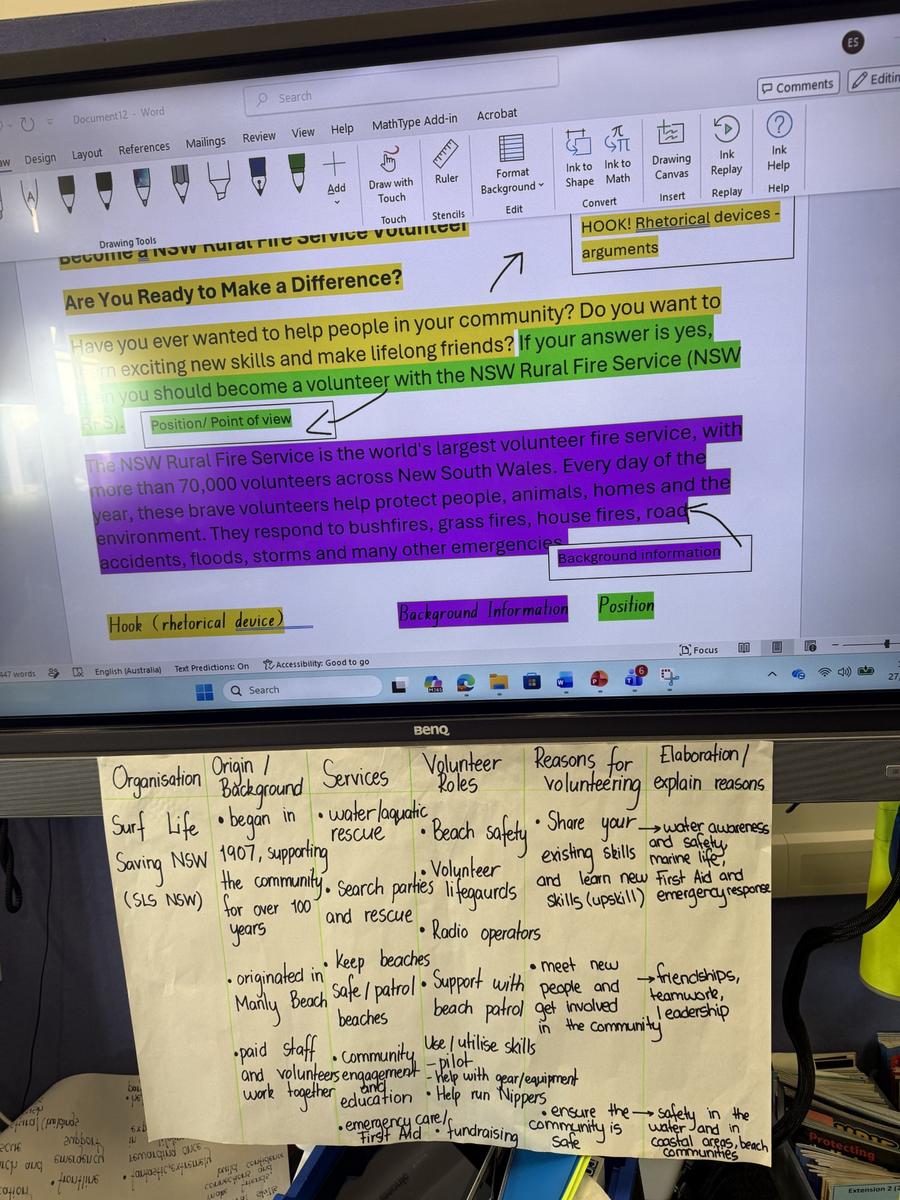 ES
Document12 - Word
Search
Comments
Design Layout References Mailings Review View Help MathType Add-in Acrobat
Add
Drawing Tools
Draw with Touch
Touch
Ruler
Stencils
Format Background
Edit
Ink to Shape
Ink to Math
Convert
Drawing Canvas
Insert
Ink Replay
Replay
Ink Help
Help
Become a NSW Rural Fire Service Volunteer
HOOK! Rhetorical devices -
arguments
Are You Ready to Make a Difference?
Have you ever wanted to help people in your community? Do you want to
exciting new skills and make lifelong friends? If your answer is yes,
you should become a volunteer with the NSW Rural Fire Service (NSW
RFS).
Position/ Point of view
The NSW Rural Fire Service is the world's largest volunteer fire service, with
more than 70,000 volunteers across New South Wales. Every day of the
year, these brave volunteers help protect people, animals, homes and the
environment. They respond to bushfires, grass fires, house fires, road
accidents, floods, storms and many other emergencies.
Background information
Hook (rhetorical device)
Background Information
Position
447 words English (Australia) Text Predictions: On Accessibility: Good to go
Focus
Search
6
BenQ
Organisation
Surf Life
Saving NSW
(SLS NSW)
Origin /
Background
• began in
1907, supporting
the community
for over 100
years
• originated in
Manly Beach
• paid staff
and volunteers
work together
Services
• water/aquatic
rescue
• Search parties
and rescue
• Keep beaches
safe/patrol
beaches
• Community
engagement
and
education
• emergency care/
First Aid
Volunteer
Roles
• Beach safety
• Volunteer
lifegaurds
• Radio operators
• Support with
beach patrol
Use/utilise skills
- pilot
- Help with gear/equipment
• Help run Nippers
• fundraising
Reasons for
volunteering
• Share your
existing skills
and learn new
skills (upskill)
• meet new
people and
get involved
in the community
• ensure the
community is
safe
Elaboration/
explain reasons
→ water awareness
and safety,
marine life,
First Aid and
emergency response
→ friendships,
teamwork,
leadership
→ safety in the
water and in
coastal areas, beach
communities
support
emergency
• routine
build confidence
connections and
make friends,
skills
Protecting
Extension 2